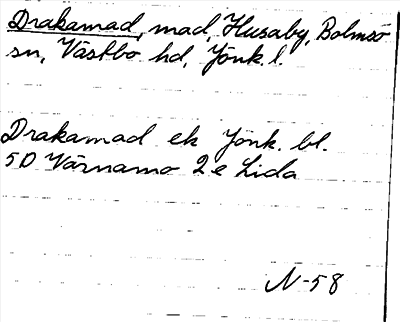 Drakamad, mad, Husaby, Bolmsö
sn, Västbo hd, Jönk. l.
Drakamad ek Jönk. bl.
5D Värnamo 2e Lida
N-58